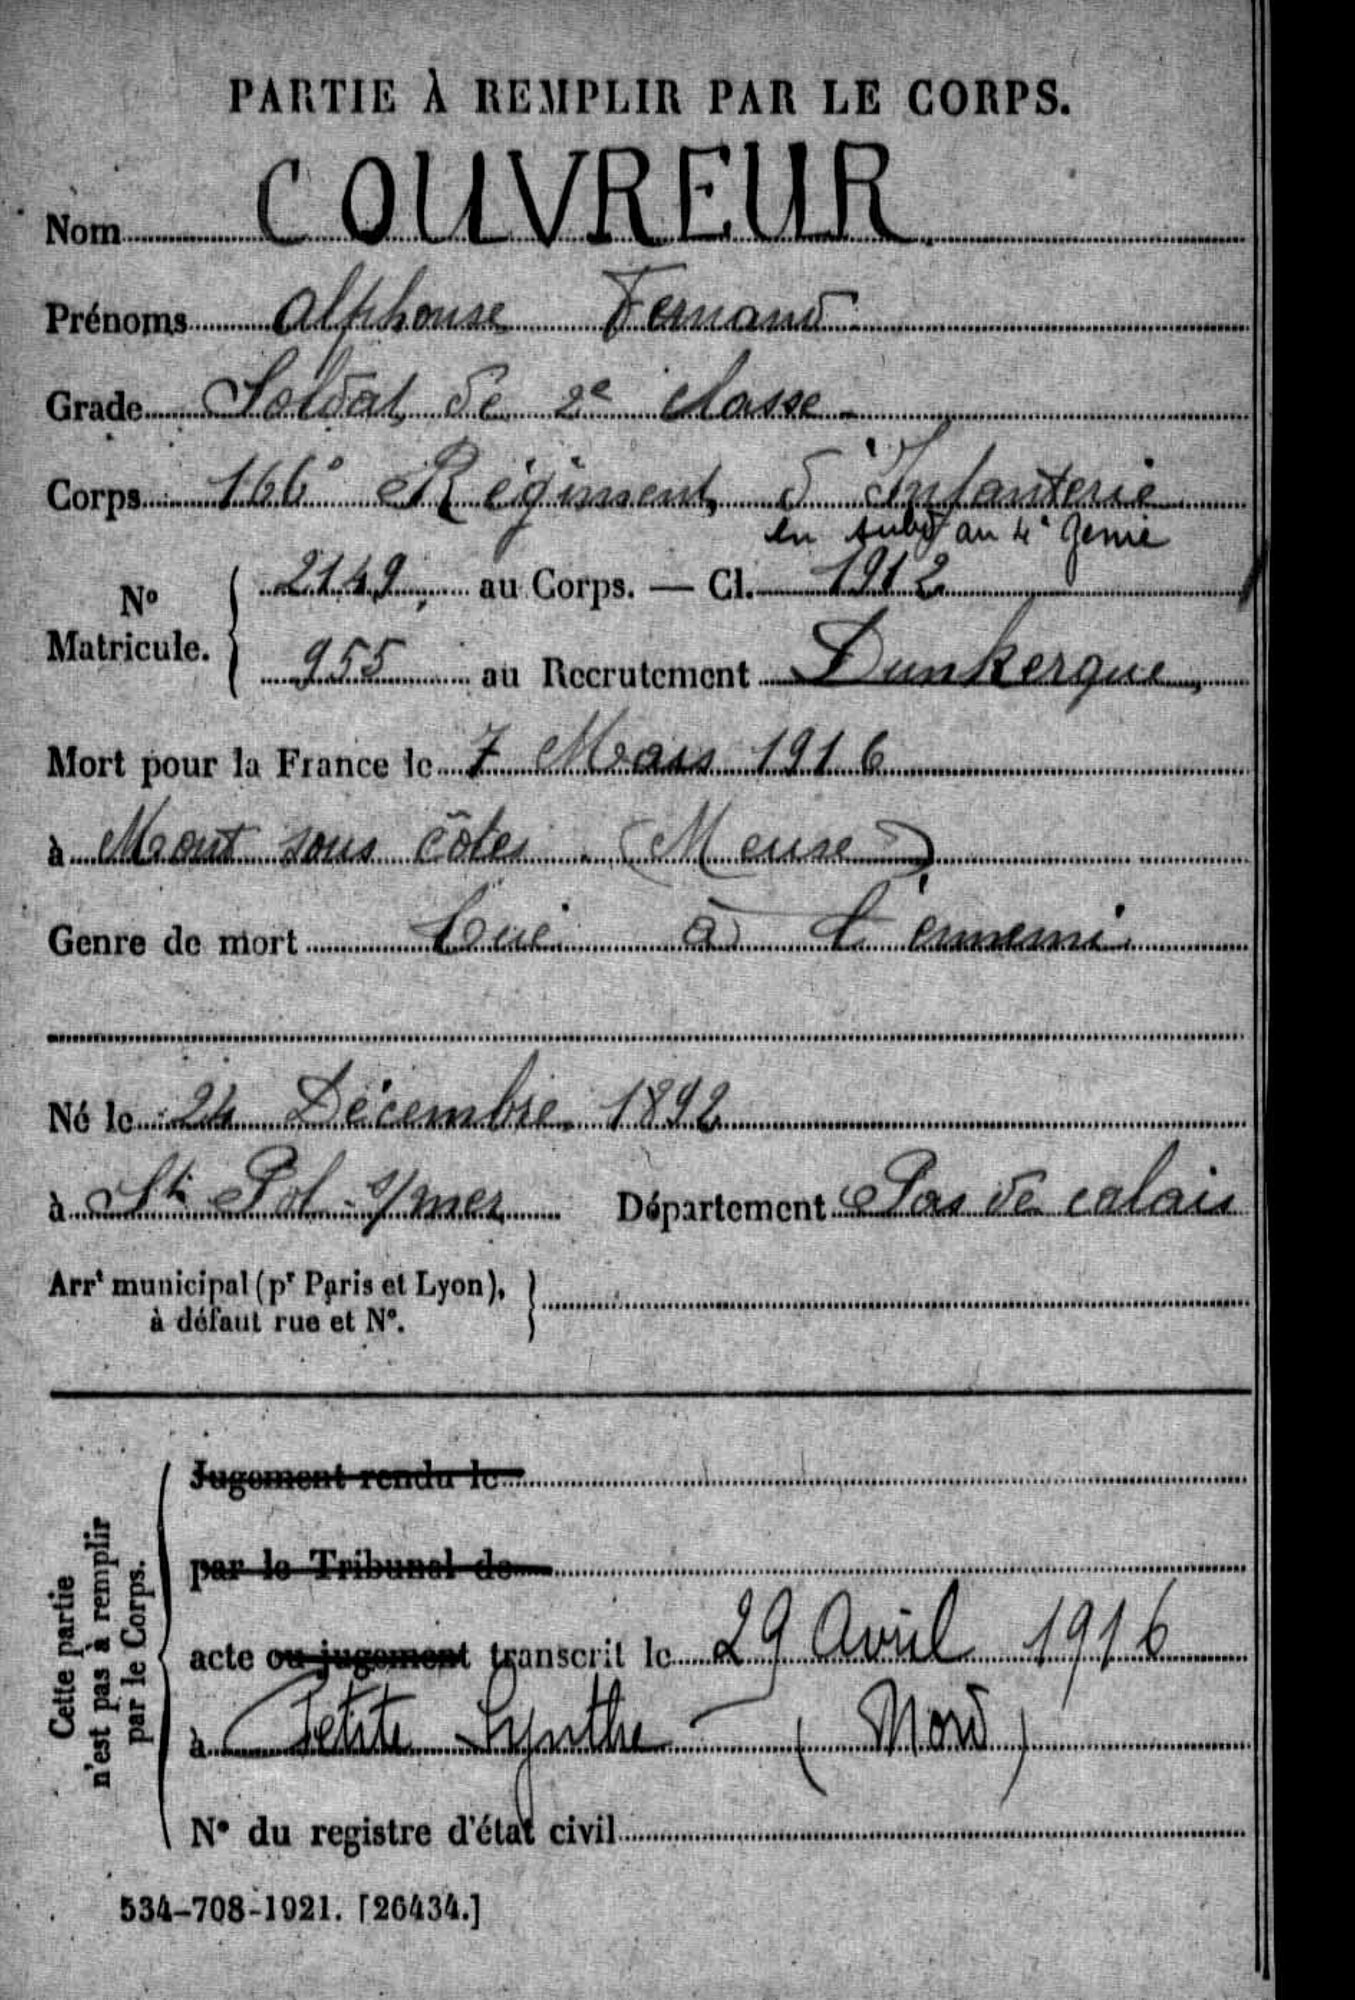 PARTIE À REMPLIR PAR LE CORPS.
Nom COUVREUR
Prénoms Alphonse Fernand
Grade Soldat de 2e classe
Corps 166e Régiment d'Infanterie
en subce au 4e Génie
No Matricule. { 2149 au Corps. — Cl. 1912
955 au Recrutement Dunkerque
Mort pour la France le 7 Mars 1916
à Mont sous côtes (Meuse)
Genre de mort Tué à l'ennemi
Né le 24 Décembre 1892
à St Pol s/mer Département Pas de calais
Arrt municipal (pr Paris et Lyon),
à défaut rue et No.
Cette partie
n'est pas à remplir
par le Corps.
Jugement rendu le
par le Tribunal de
acte ou jugement transcrit le 29 Avril 1916
à Petite Synthe (Nord)
No du registre d'état civil
534-708-1921. [26434.]